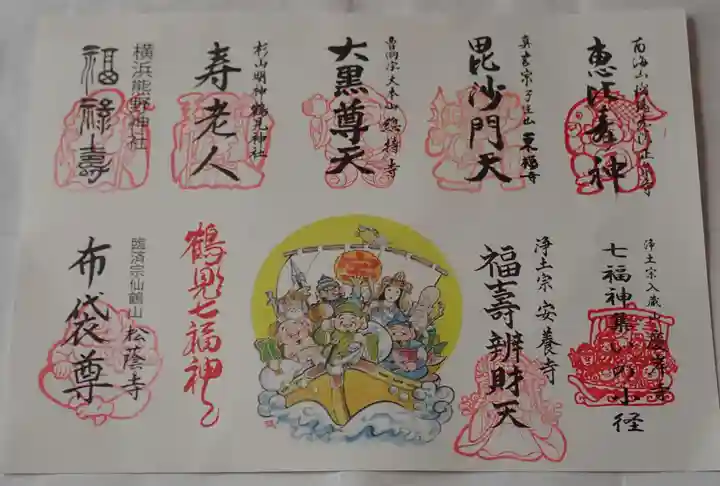 恵比寿神
真言宗子生山 東福寺
毘沙門天
曹洞宗大本山 總持寺
大黒尊天
杉山明神 鶴見神社
寿老人
横浜熊野神社
福禄壽
七福神集いの小径
浄土宗 安養寺
福壽辨財天
鶴見七福神
臨済宗仙鶴山 松蔭寺
布袋尊